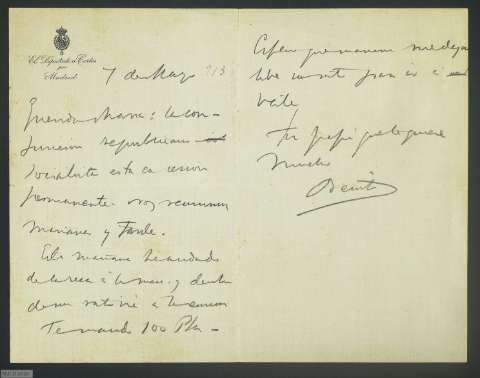 El Diputado a Cortes
por
Madrid
7 de Mayo 913
Querida María: la con-
junción republicano
socialista está en sesión
permanente. Nos reunimos
mañana y tarde.
Esta mañana he andado
de la ceca á la meca, y dentro
de un rato iré a la sesión
Te mando 100 Ptas -
Espero que mañana me dejen
libre un rato para ir á
verte
Tu papá que te quiere
mucho
Benito